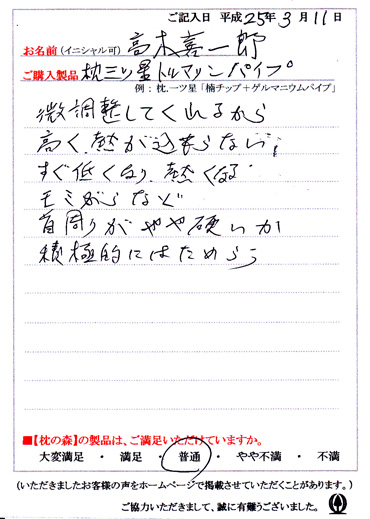 ご記入日 平成25年3月11日
お名前(イニシャル可) 高木喜一郎
ご購入製品 枕三ツ星トルマリンパイプ
例：枕.一ツ星「楠チップ＋ゲルマニウムパイプ」
微調整してくれるから
高く、熱が込もらない;
すぐ低くなり、熱くなる
モミがらなど
首周りがやや硬いか
積極的にはためらう
■【枕の森】の製品は、ご満足いただけていますか。
大変満足 ・ 満足 ・ 普通 ・ やや不満 ・ 不満
(いただきましたお客様の声をホームページで掲載させていただくことがあります。)
ご協力いただきまして、誠に有難うございました。